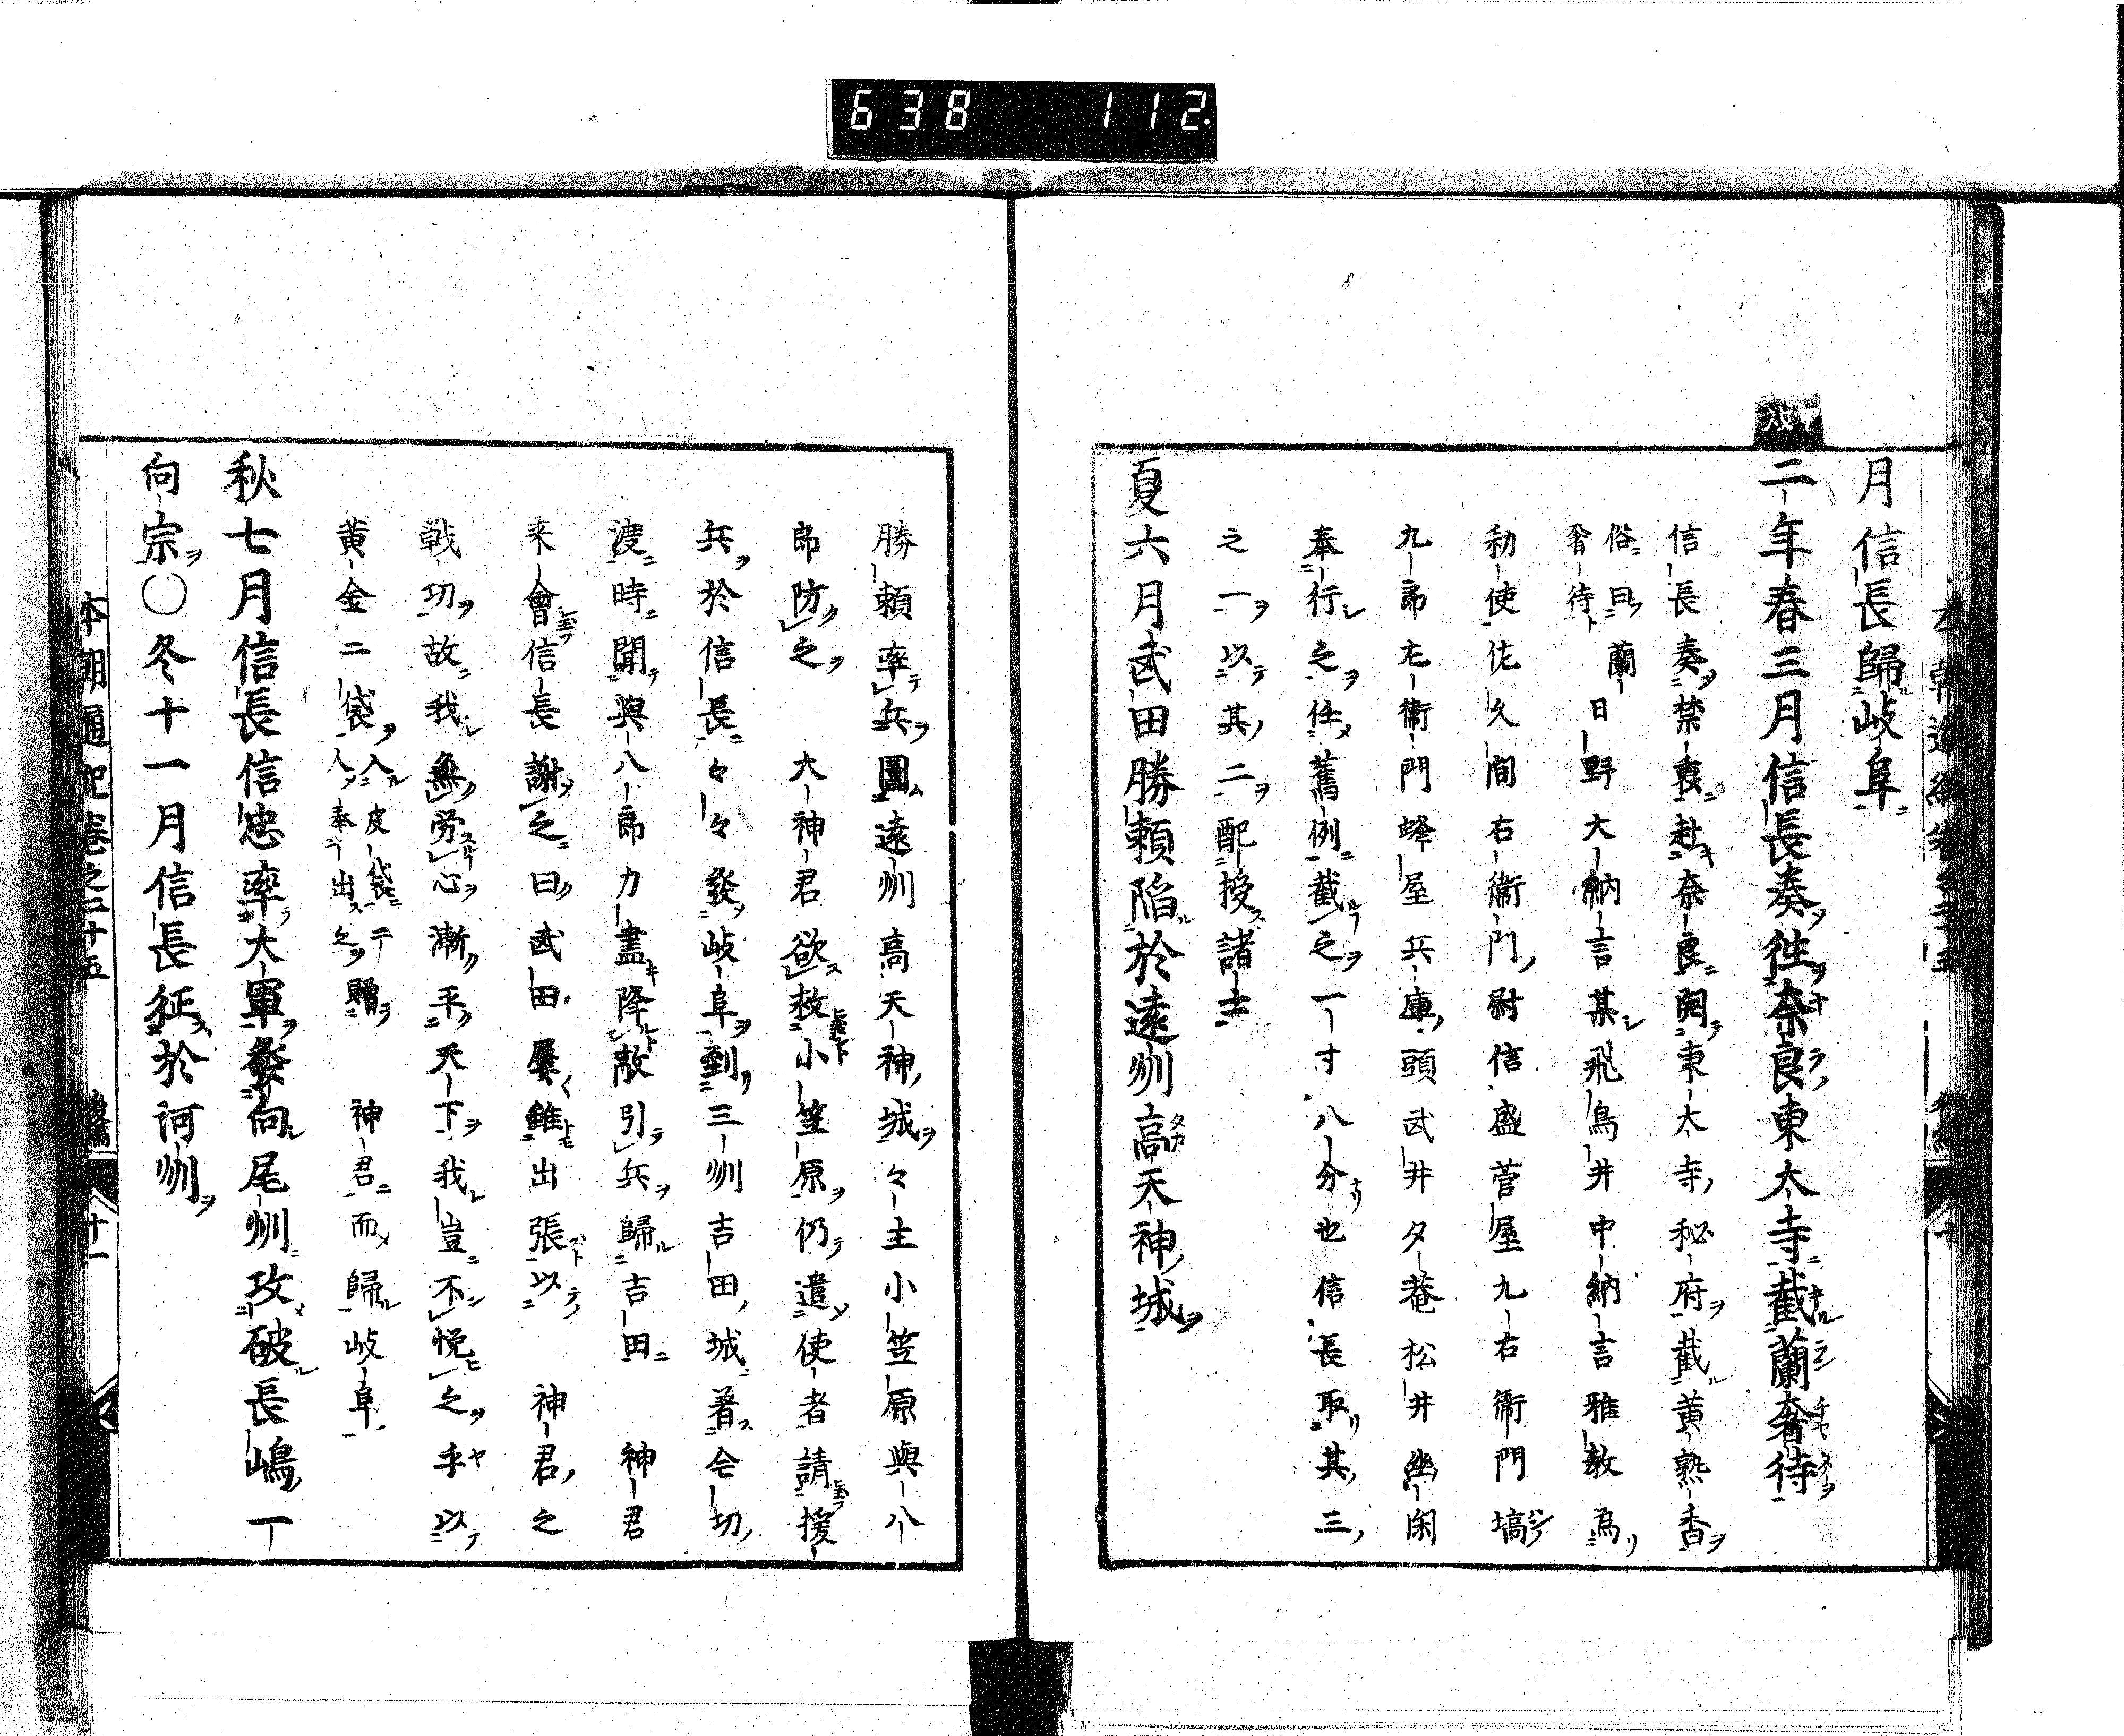 638 112
月信長歸岐阜
甲戌
二年春三月信長奏徃奈良東大寺截蘭奢待
信長奏禁裏赴奈良開東大寺秘府截黄熟香
俗曰蘭
奢待
日野大納言某飛鳥井中納言雅敎為
勑使佐久間右衞門尉信盛菅屋九右衞門塙
九郎左衞門蜂屋兵庫頭武井夕菴松井幽閑
奉行之任舊例截之一寸八分也信長取其三
之一以其二配授諸士
夏六月武田勝頼陷於遠州高天神城
勝頼率兵圍遠州高天神城々主小笠原與八
郎防之 大神君欲救小笠原仍遣使者請援
兵於信長々々發岐阜到三州吉田城著今切
渡時聞與八郎力盡降敵引兵歸吉田 神君
来會信長謝之曰武田屢雖出張以 神君之
戰功故我無労心漸平天下我豈不悦之乎以
黄金二袋
入皮袋二
人奉出之
贈 神君而歸岐阜
秋七月信長信忠率大軍發向尾州攻破長嶋一
向宗〇冬十一月信長征於河州
本朝通紀卷之二十五 後編 十一